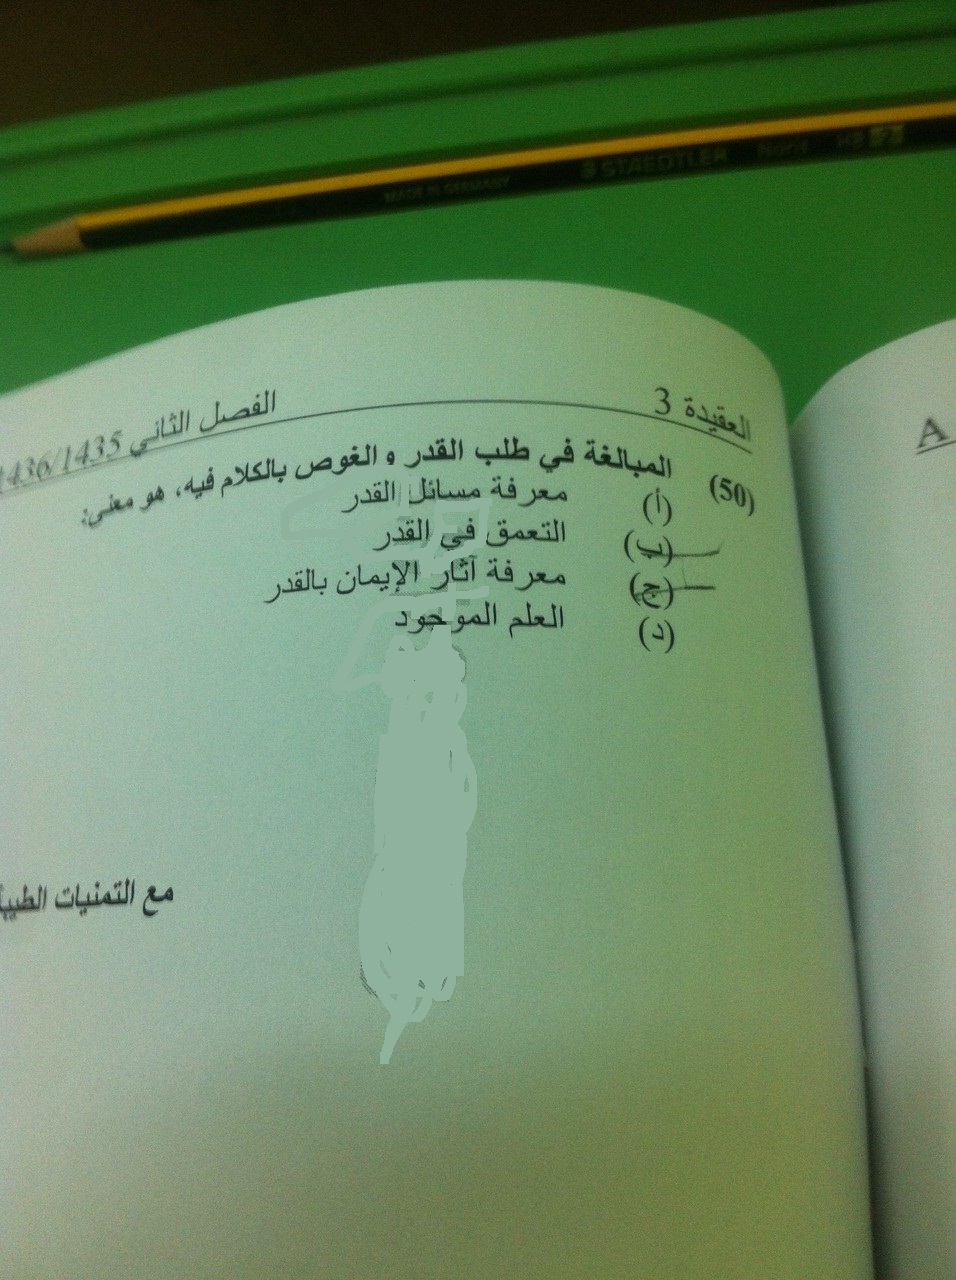 MADE IN GERMANY STAEDTLER Noris HB 2
العقيدة 3 الفصل الثاني 1436/1435
A
(50) المبالغة في طلب القدر و الغوص بالكلام فيه، هو معنى:
(أ) معرفة مسائل القدر
(ب) التعمق في القدر
(ج) معرفة آثار الإيمان بالقدر
(د) العلم الموجود
مع التمنيات